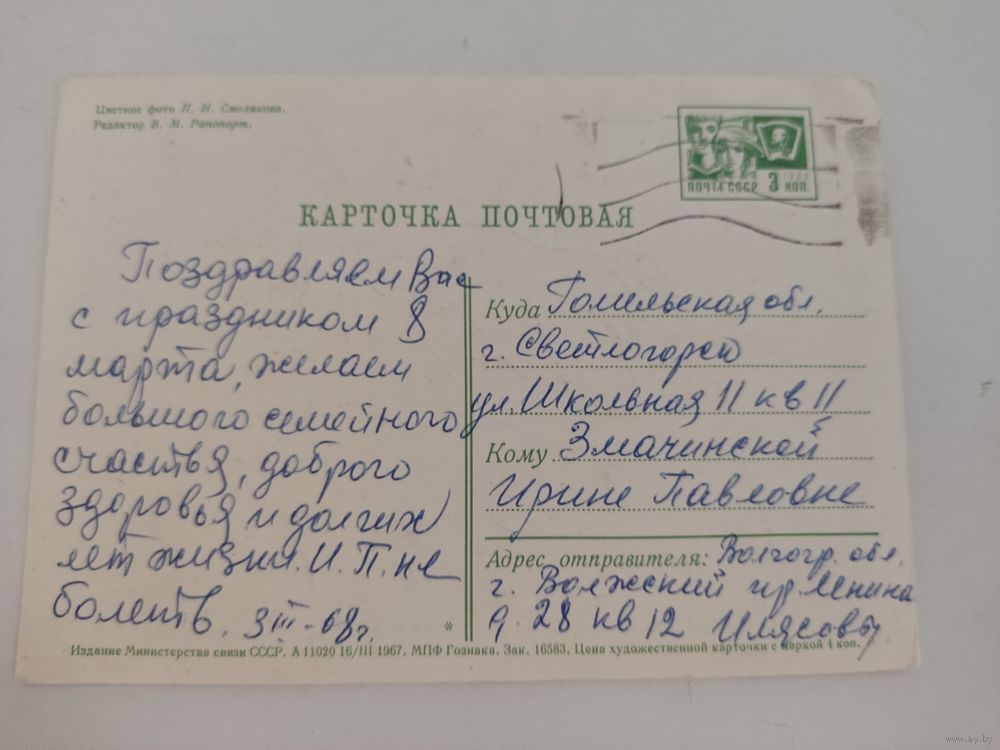 Цветное фото П. И. Смолякова.
Редактор В. М. Рапопорт.
ПОЧТА СССР 3 КОП.
1966
КАРТОЧКА ПОЧТОВАЯ
Поздравляем Вас
с праздником 8
марта, желаем
большого семейного
счастья, доброго
здоровья и долгих
лет жизни. И. П. не
болеть. 3 III-68г.
Куда Гомильская обл.
г. Светлогорск
ул. Школьная 11 кв 11
Кому Змачинской
Ирине Павловне
Адрес отправителя: Волгогр. обл.
г. Волжский пр. Ленина
д. 28 кв 12 Илясовы
*
Издание Министерства связи СССР. А 11020 16/III 1967. МПФ Гознака. Зак. 16583. Цена художественной карточки с маркой 4 коп.
www.ay.by